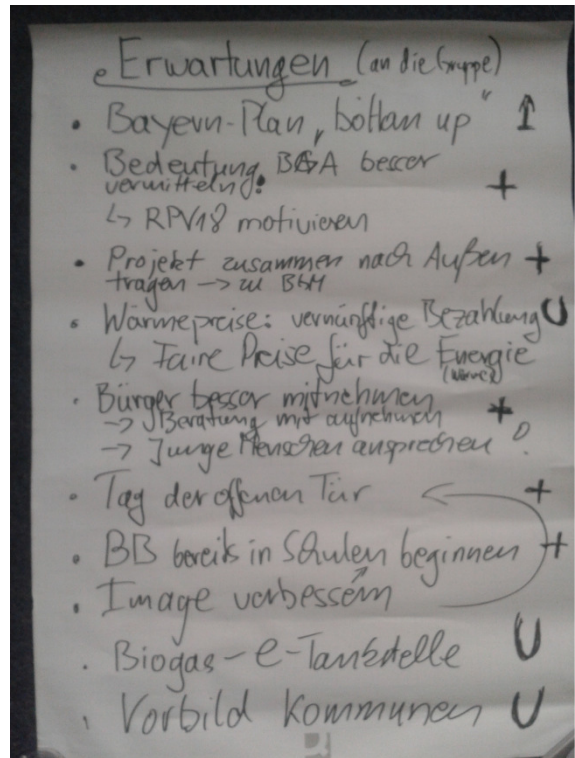 Erwartungen (an die Gruppe)
• Bayern-Plan „bottam up" ↑
• Bedeutung BGA besser
vermitteln! +
↳ RPV18 motivieren
• Projekt zusammen nach Außen +
tragen -> zu
• Wärmepreise: vernünftige Bezahlung U
↳ Faire Preise für die Energie
• Bürger besser mitnehmen
-> Beratung mit aufnehmen +
-> Junge Menschen ansprechen !
• Tag der offenen Tür +
• BB bereits in Schulen beginnen +
• Image verbessern
• Biogas-e-Tankstelle U
• Vorbild Kommunen U